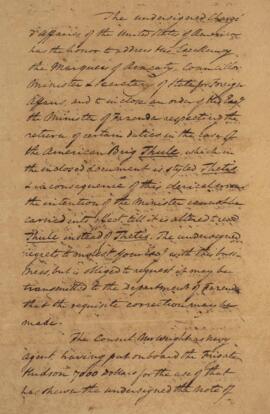 The undersigned Chargé
d'Affaires of the United States of America
has the honor to address His Excellency
the Marquess of Aracaty, Councillor
Minister & Secretary of State for Foreign
Affairs, and to inclose an order of His Excy
the Minister of Fazenda respecting the
return of certain duties in the case of
the American Brig Thule, which in
the inclosed document is styled Thetis
& in consequence of this clerical error
the intention of the Minister cannot be
carried into effect till it is altered
Thule instead of Thetis. The undersigned
regrets to molest your with this busi-
ness but is obliged to request it may be
transmitted to the department of Fazenda
that the requisite correction may be
made.
The Consul, Mr Wright as Navy
agent having put on board the Frigate
Hudson 7000 dollars for the use of that
has shewn the undersigned the note of